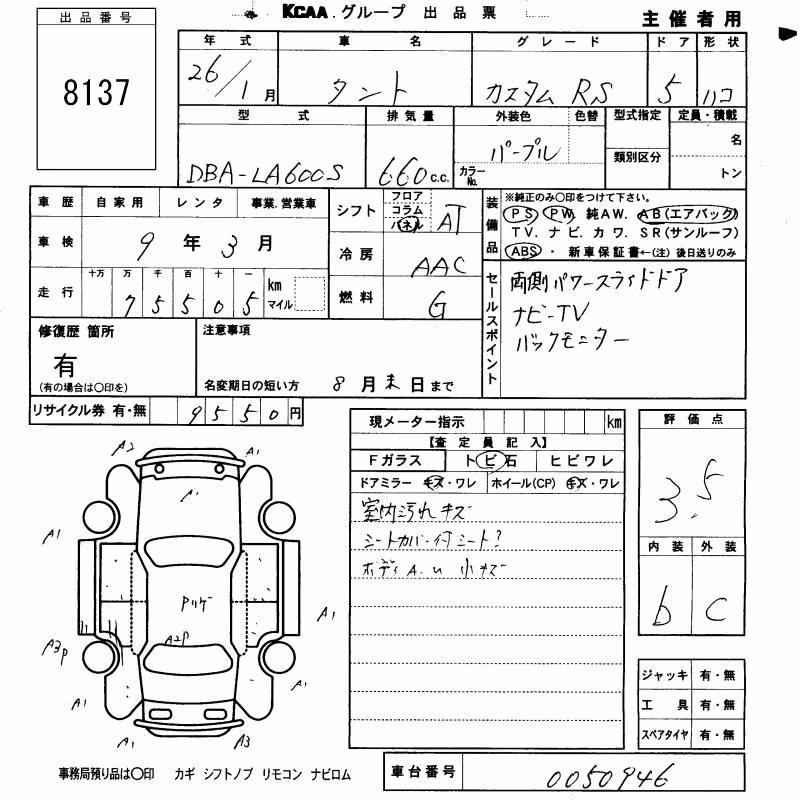 KCAA.グループ 出品票
主催者用
出品番号
8137
年式 車名 グレード ドア 形状
26/1月 タント カスタム RS 5 ハコ
型式 排気量 外装色 色替 型式指定 定員・積載
DBA-LA600S 660c.c. パープル カラーNo. 類別区分 名
トン
車歴 自家用 レンタ 事業.営業車
車検 9年3月
走行 十万 万 千 百 十 一
75505 km マイル
シフト フロア コラム パネル AT
冷房 AAC
燃料 G
装備品 ※純正のみ○印をつけて下さい。
PS PW 純AW. AB(エアバック)
TV. ナビ. カワ. SR(サンルーフ)
ABS ・ 新車保証書←(注)後日送りのみ
セールスポイント
両側パワースライドドア
ナビ-TV
バックモニター
修復歴 箇所
有
(有の場合は○印を)
注意事項
名変期日の短い方 8月末日まで
リサイクル券 有・無 9550円
現メーター指示 km
【査定員記入】
Fガラス トビ石 ヒビワレ
ドアミラー キズ・ワレ ホイール(CP) キズ・ワレ
室内汚れキズ
シートカバー付シート?
ボディA.u 小キズ
評価点
3.5
内装 外装
b C
A2 A1
A1
A1
Pハゲ
A1
A3P
A2P
A1 A1
A1 A3
ジャッキ 有・無
工具 有・無
スペアタイヤ 有・無
事務局預り品は○印 カギ シフトノブ リモコン ナビロム
車台番号 0050946